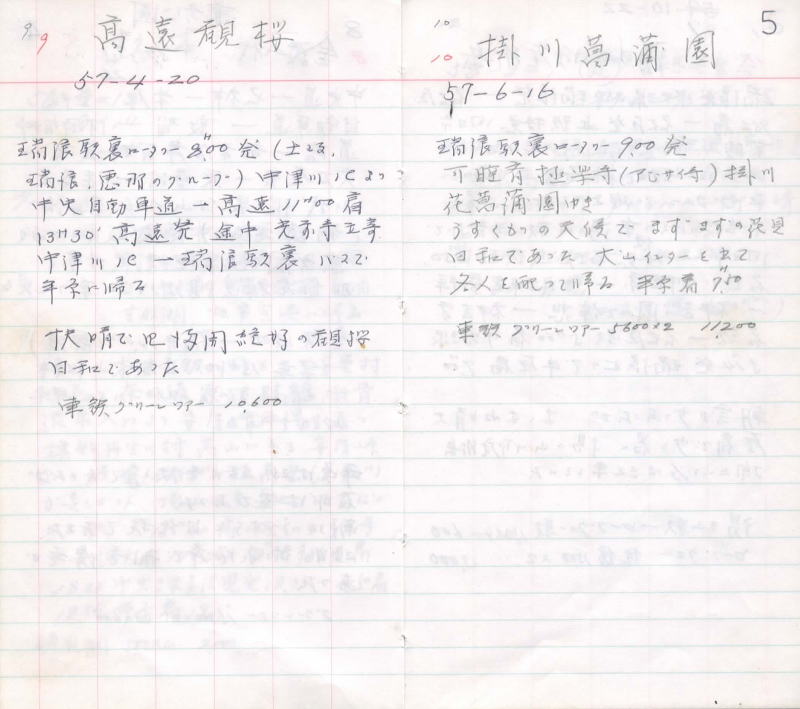 9
9
高遠観桜
57-4-20
瑞浪駅裏ロータリー 8.00発 (土岐、
瑞浪、恵那のグループ) 中津川ICより
中央自動車道 — 高遠 11H00着
13H30' 高遠発 途中 光前寺立寄
中津川IC — 瑞浪駅裏 バスで
に帰る
快晴で 絶好の観桜
日和であった
東鉄グリーンツアー 10,600
5
10
10
掛川菖蒲園
57-6-16
瑞浪駅裏ロータリー 9.00発
可睡斉 極楽寺(アジサイ寺) 掛川
花菖蒲園ゆき
うすぐもりの天候で まずまずの花見
日和であった 犬山インターを出て
各人を配って帰る 着
東鉄グリーンツアー 5600×2 11,200